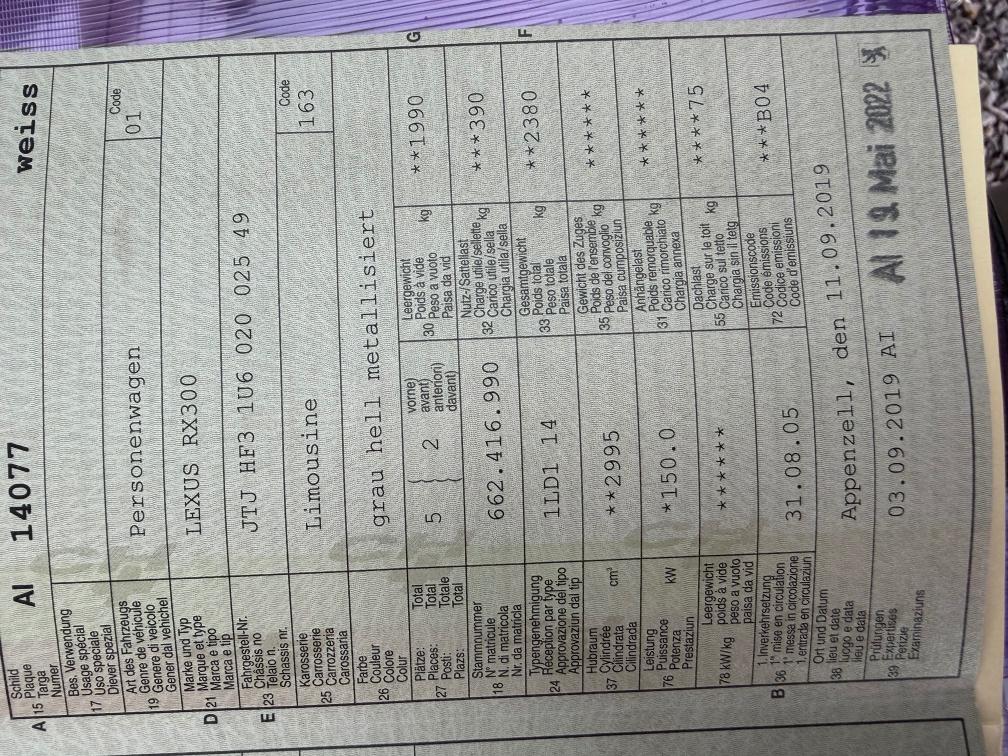 A 15 Schild
Plaque
Targa
Numer
AI 14077 weiss
17 Bes. Verwendung
Usage spécial
Uso speciale
Diever spezial
19 Art des Fahrzeugs
Genre de véhicule
Genere di veicolo
Gener dal vehichel
Personenwagen
Code
01
D 21 Marke und Typ
Marque et type
Marca e tipo
Marca e tip
LEXUS RX300
E 23 Fahrgestell-Nr.
Châssis no
Telaio n.
Schassis nr.
JTJ HF3 1U6 020 025 49
25 Karosserie
Carrosserie
Carrozzeria
Carossaria
Limousine
Code
163
26 Farbe
Couleur
Colore
Colur
grau hell metallisiert
27 Plätze: Total
Places: Total
Posti: Totale
Plazs: Total
5 { 2 vorne)
avant)
anteriori)
davant)
G
30 Leergewicht
Poids à vide
Peso a vuoto
Paisa da vid
kg
**1990
18 Stammnummer
N° matricule
N. di matricola
Nr. da matricla
662.416.990
32 Nutz-/Sattellast
Charge utile/sellette
Carico utile/sella
Chargia utila/sella
kg
***390
24 Typengenehmigung
Réception par type
Approvazione del tipo
Approvaziun dal tip
1LD1 14
F
33 Gesamtgewicht
Poids total
Peso totale
Paisa totala
kg
**2380
37 Hubraum
Cylindrée
Cilindrata
Cilindrada
cm³
**2995
35 Gewicht des Zuges
Poids de l'ensemble
Peso del convoglio
Paisa cumposiziun
kg
******
76 Leistung
Puissance
Potenza
Prestaziun
kW
*150.0
31 Anhängelast
Poids remorquable
Carico rimorchiato
Chargia annexa
kg
******
78 kW/kg Leergewicht
poids à vide
peso a vuoto
paisa da vid
******
55 Dachlast
Charge sur le toit
Carico sul tetto
Chargia sin il tetg
kg
****75
B 36 1. Inverkehrsetzung
1re mise en circulation
1a messa in circolazione
1. entrada en circulaziun
31.08.05
72 Emissionscode
Code émissions
Codice emissioni
Code d'emissiuns
***B04
38 Ort und Datum
lieu et date
luogo e data
lieu e data
Appenzell, den 11.09.2019
39 Prüfungen
Expertises
Perizie
Examinaziuns
03.09.2019 AI
AI 19. Mai 2022